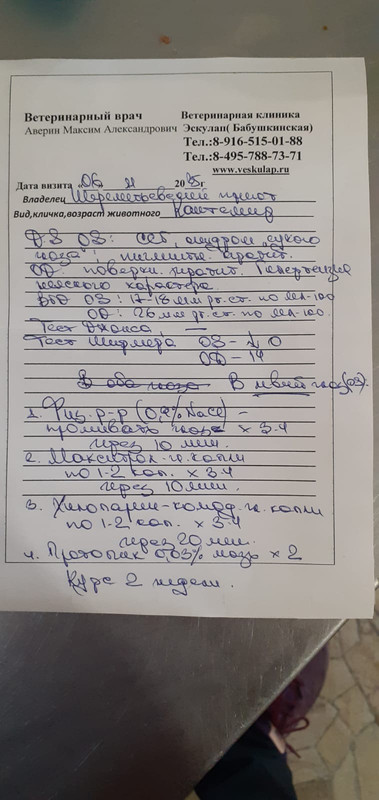 Ветеринарный врач
Аверин Максим Александрович
Ветеринарная клиника
Эскулап( Бабушкинская)
Тел.:8-916-515-01-88
Тел.:8-495-788-73-71
www.veskulap.ru
Дата визита 06 11 20 г
Владелец Шереметьевский приют
Вид,кличка,возраст животного
DS OS: ССГ, синдром сухого
глаза, пигментн. кератит.
OD: поверхн. кератит. Гипертензия
неясного характера.
ВГД OS: 17-18 мм рт. ст. по МЛ-100
OD: 26 мм рт. ст. по МЛ-100.
Тест Джонса, —
Тест Ширмера OS-
OD- 14
В оба глаза В левый глаз (OS).
1. Физ. р-р (0,9% NaCl) -
промывать глаза х 3-4
через 10 мин.
2. Макситрол-гл. капли
по 1-2 кап. х 3-4
через 10 мин.
3. Хилопарин-комод-гл. капли
по 1-2 кап. х 3-4
через 20 мин.
4. Протопик 0,03% мазь х 2
Курс 2 недели.